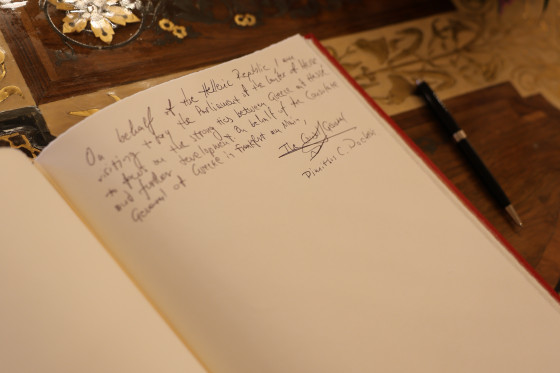 On behalf of the Hellenic Republic I am
writing the Parliament of the Land of Hesse
to the strong ties between Greece and Hesse
and further development. On behalf of the Consulate
General of Greece in Frankfurt am Main,
The Consul General
Dimitris C.